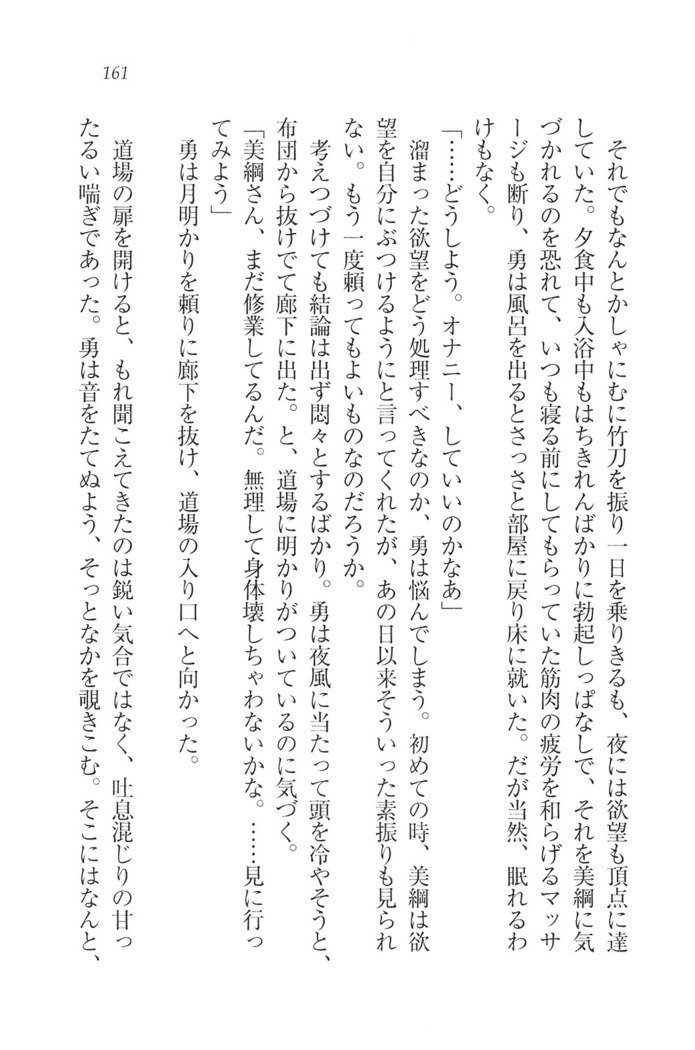 161
それでもなんとかしゃにむに竹刀を振り一日を乗りきるも、夜には欲望も頂点に達
していた。夕食中も入浴中もはちきれんばかりに勃起しっぱなしで、それを美綱に気
づかれるのを恐れて、いつも寝る前にしてもらっていた筋肉の疲労を和らげるマッサ
ージも断り、勇は風呂を出るとさっさと部屋に戻り床に就いた。だが当然、眠れるわ
けもなく。
「……どうしよう。オナニー、していいのかなあ」
溜まった欲望をどう処理すべきなのか、勇は悩んでしまう。初めての時、美綱は欲
望を自分にぶつけるようにと言ってくれたが、あの日以来そういった素振りも見られ
ない。もう一度頼ってもよいものなのだろうか。
考えつづけても結論は出ず悶々とするばかり。勇は夜風に当たって頭を冷やそうと、
布団から抜けでて廊下に出た。と、道場に明かりがついているのに気づく。
「美綱さん、まだ修業してるんだ。無理して身体壊しちゃわないかな。……見に行っ
てみよう」
勇は月明かりを頼りに廊下を抜け、道場の入り口へと向かった。
道場の扉を開けると、もれ聞こえてきたのは鋭い気合ではなく、吐息混じりの甘っ
たるい喘ぎであった。勇は音をたてぬよう、そっとなかを覗きこむ。そこにはなんと、